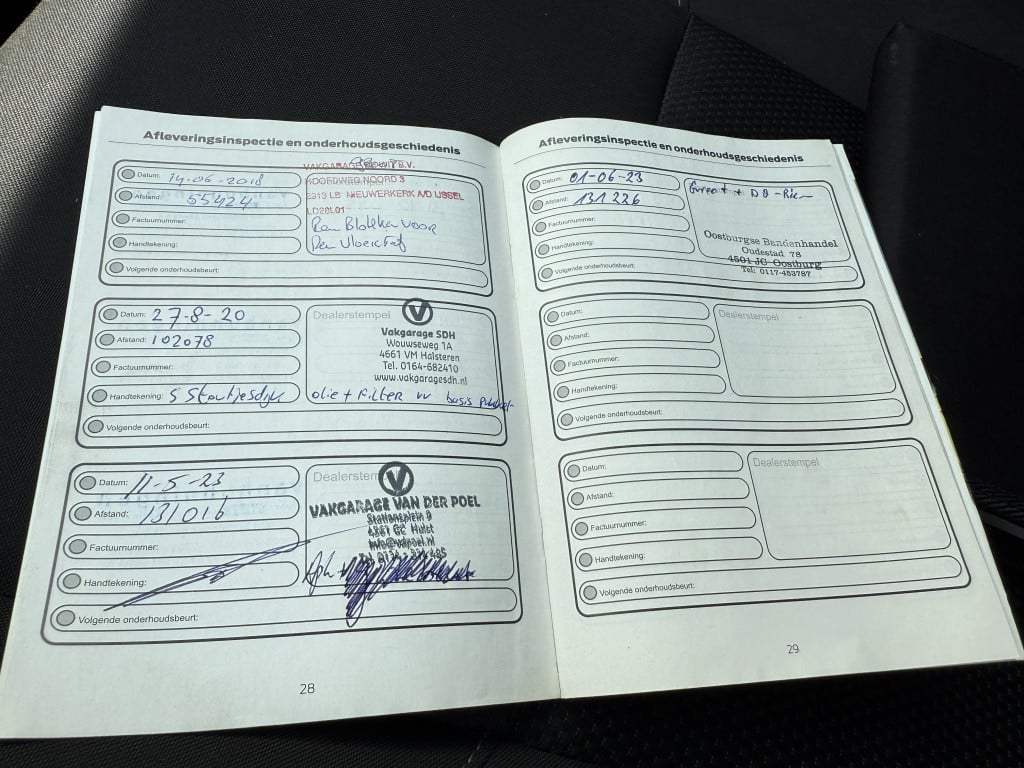 Afleveringsinspectie en onderhoudsgeschiedenis
Datum: 14-06-2018
Afstand: 55424
Factuurnummer:
Handtekening:
Volgende onderhoudsbeurt:
VAKGARAGE B.V.
NOORD 3
2913 LB NIEUWERKERK A/D IJSSEL
LD28L01
Datum: 27-8-20
Afstand: 102078
Factuurnummer:
Handtekening:
Volgende onderhoudsbeurt:
Dealerstempel
Vakgarage SDH
Wouwseweg 1A
4661 VM Halsteren
Tel. 0164-682410
www.vakgaragesdh.nl
olie + Filter vv basis
Datum: 11-5-23
Afstand: 131016
Factuurnummer:
Handtekening:
Volgende onderhoudsbeurt:
Dealerstempel
VAKGARAGE VAN DER POEL
Stationsplein 9
4561 GC Hulst
28
Afleveringsinspectie en onderhoudsgeschiedenis
Datum: 01-06-23
Afstand: 131226
Factuurnummer:
Handtekening:
Volgende onderhoudsbeurt:
Oostburgse Bandenhandel
Oudestad 78
4501 JC Oostburg
Tel: 0117-453787
Datum:
Afstand:
Factuurnummer:
Handtekening:
Volgende onderhoudsbeurt:
Dealerstempel
Datum:
Afstand:
Factuurnummer:
Handtekening:
Volgende onderhoudsbeurt:
Dealerstempel
29